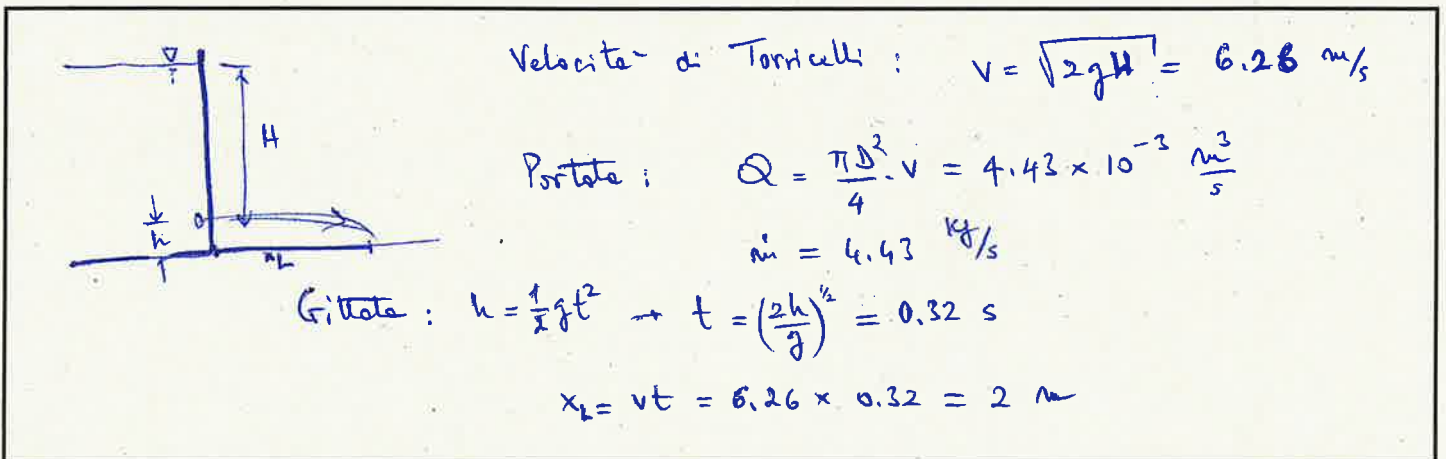 Velocità di Torricelli : v = √2gH = 6.26 m/s
H
Portata : Q = πD²/4 · v = 4.43 × 10⁻³ m³/s
h
ṁ = 4.43 kg/s
x_L
Gittata : h = ½gt² → t = (2h/g)^½ = 0.32 s
x_L = vt = 6.26 × 0.32 = 2 m